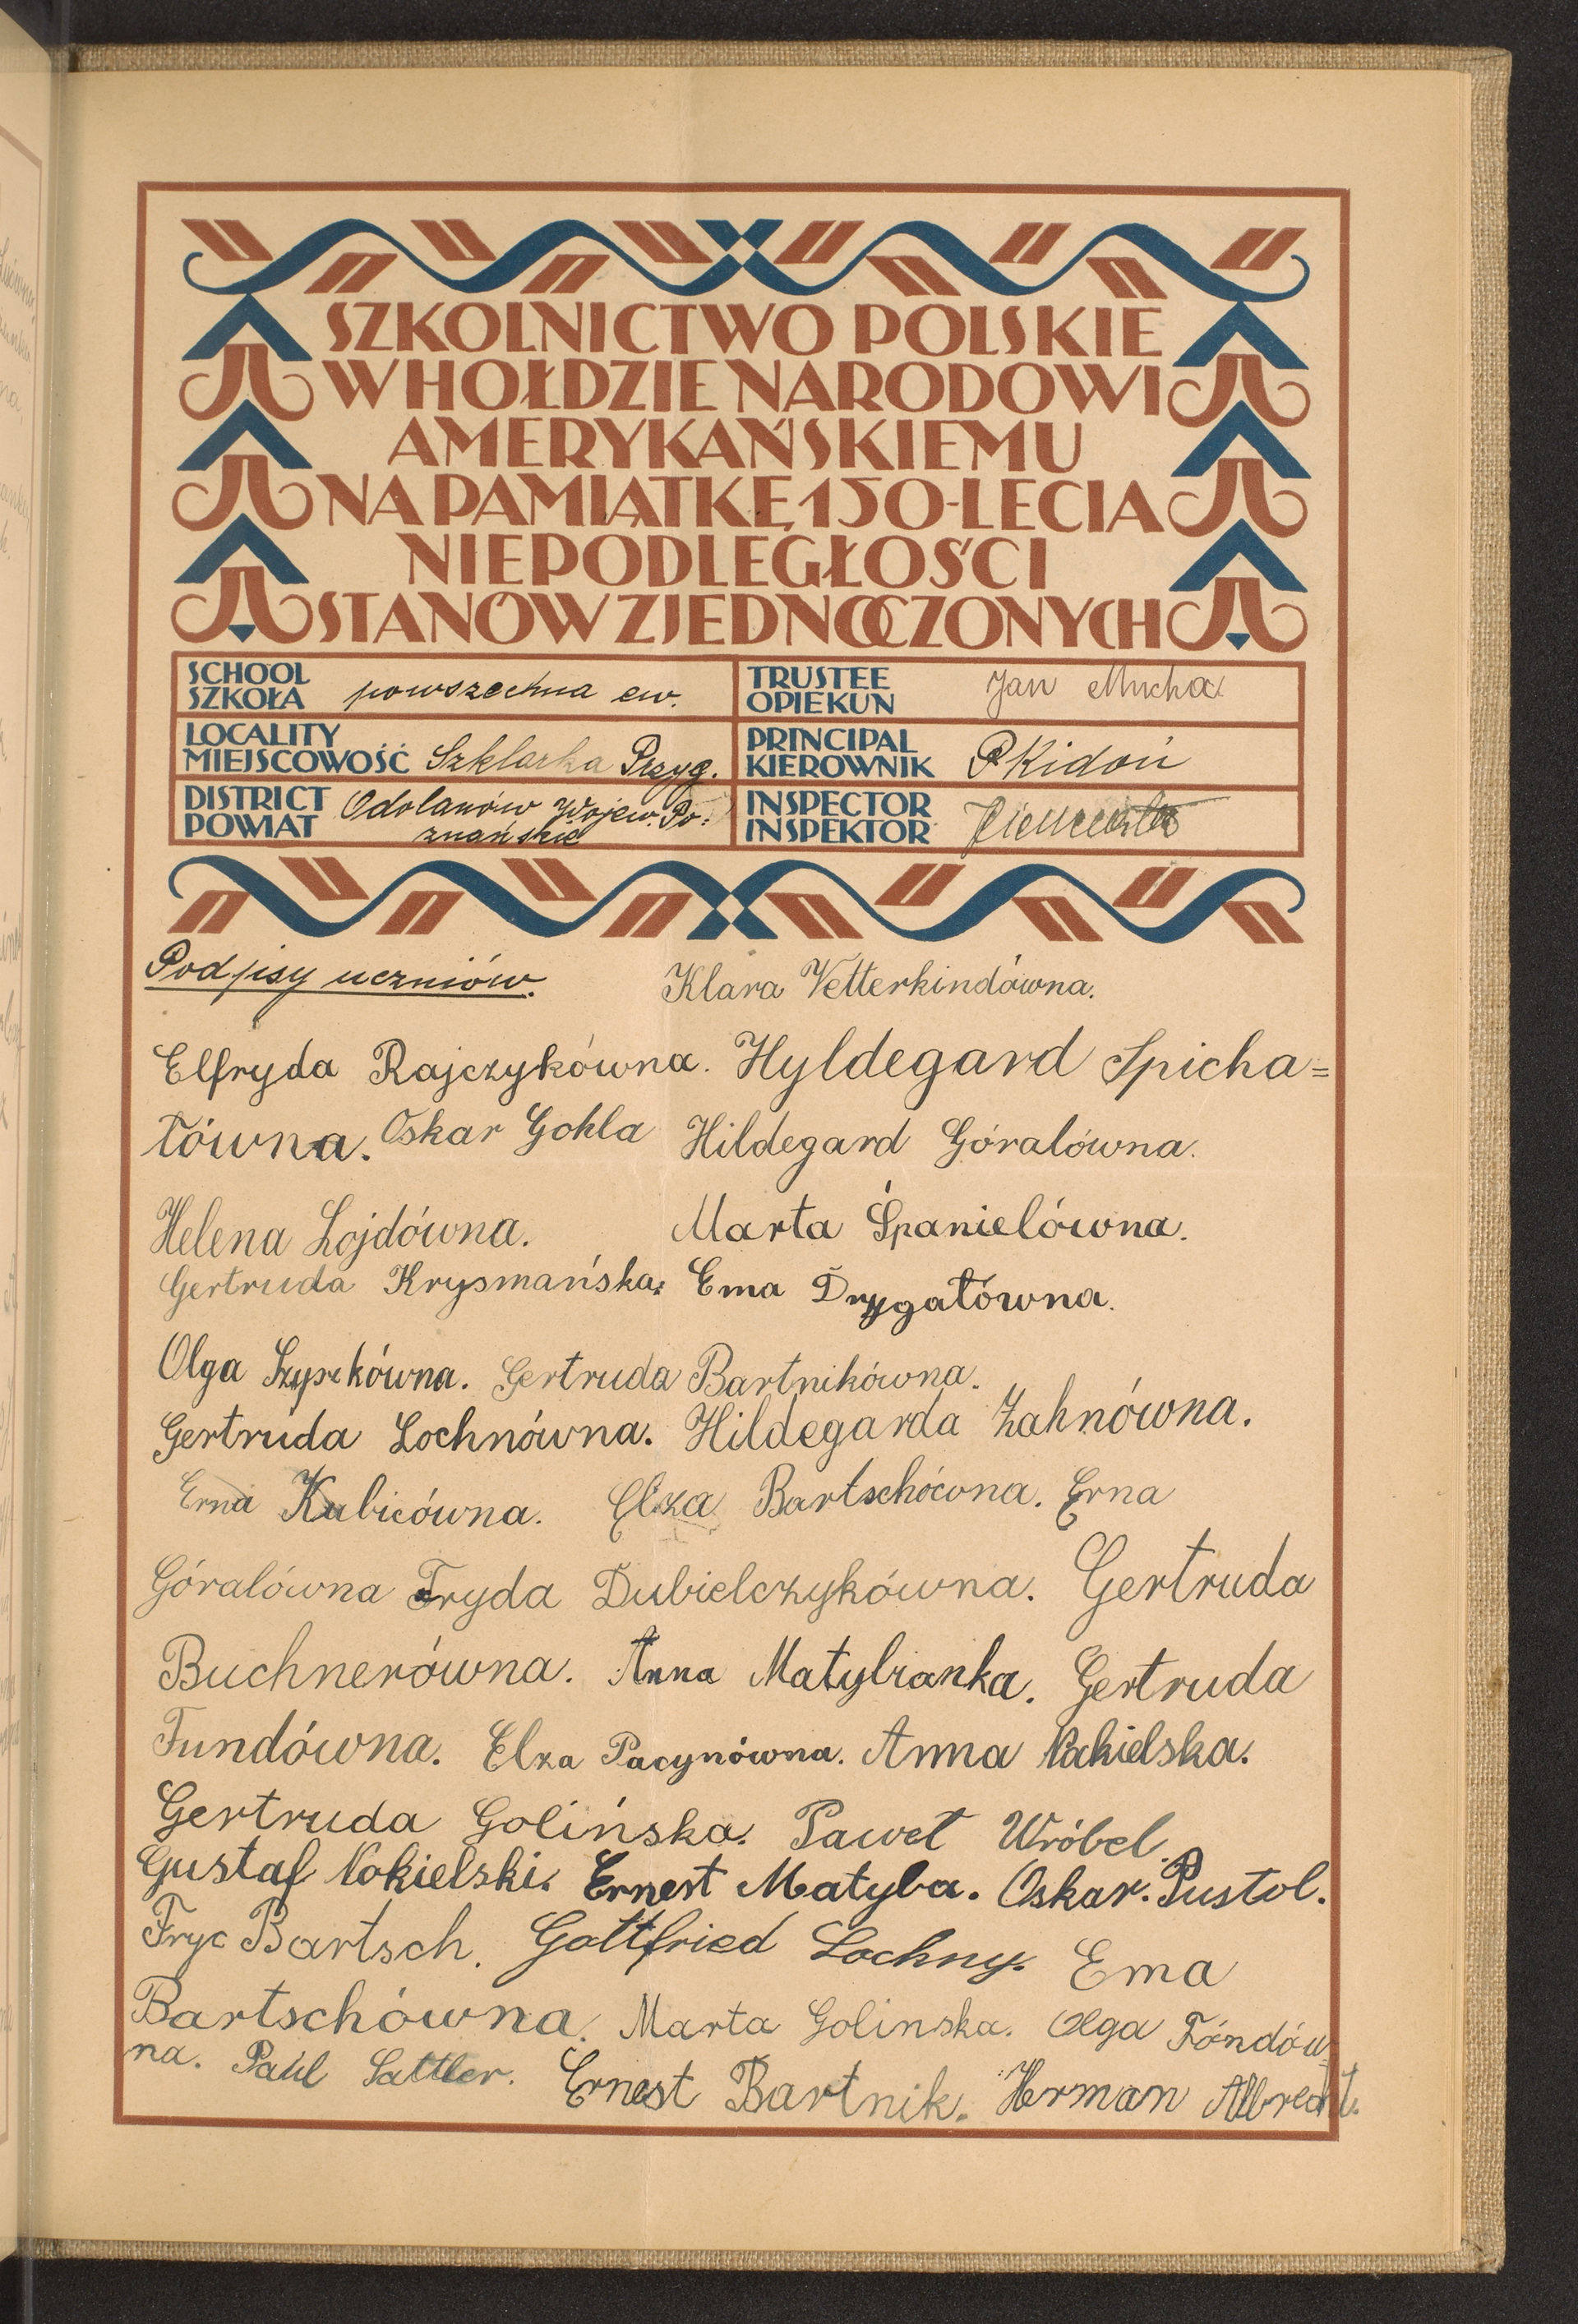 SZKOLNICTWO POLSKIE
W HOŁDZIE NARODOWI
AMERYKAŃSKIEMU
NA PAMIĄTKĘ 150-LECIA
NIEPODLEGŁOŚCI
STANÓW ZJEDNOCZONYCH
SCHOOL
SZKOŁA powszechna ew.
TRUSTEE
OPIEKUN Jan Mucha
LOCALITY
MIEJSCOWOŚĆ Szklarka Przyg.
PRINCIPAL
KIEROWNIK P Kidoń
DISTRICT
POWIAT Odolanów Wojew. Po:
znańskie
INSPECTOR
INSPEKTOR
Podpisy uczniów. Klara Vetterkindówna.
Elfryda Rajczykówna. Hyldegard Spicha=
łówna. Oskar Gohla Hildegard Góralówna.
Helena Lojdówna. Marta Španielówna.
Gertruda Krysmańska. Ema Drygałówna.
Olga Gertruda Bartnikówna.
Gertruda Lochnówna. Hildegarda Zahnówna.
Erna Kubicówna. Elza Bartschówna. Erna
Góralówna Fryda Dubielczykówna. Gertruda
Buchnerówna. Anna Matybianka. Gertruda
Fundówna. Elza Pacynówna. Anna Nakielska.
Gertruda Golińska. Paweł Wróbel.
Gustaf Nokielski. Ernest Matyba. Oskar. Pustol.
Fryc Bartsch. Gottfried Lochny. Ema
Bartschówna. Marta Golinska. Olga Fóndów
na. Paul Sattler. Ernest Bartnik. Herman Albrecht.